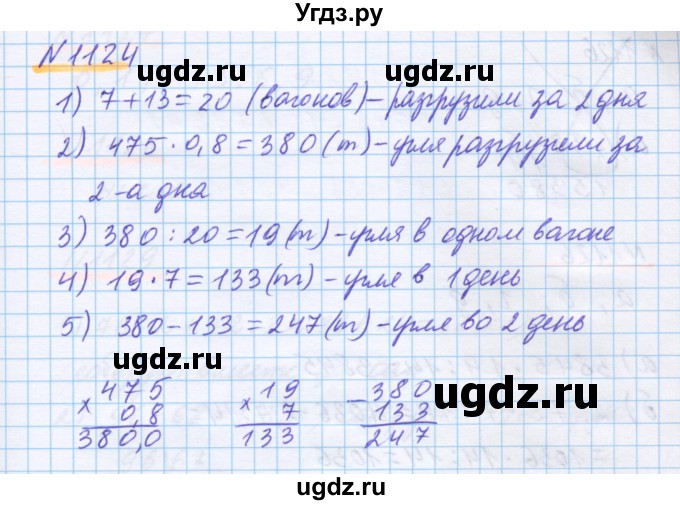 Угдз.ру
N 1124
ugdz.ru
ugdz.ru
1) 7+13=20 (вагонов)-разгрузили за 2 дня
2) 475·0,8=380(т)-угля разгрузили за
ugdz.ru
ugdz.ru
2-а дня
3) 380:20=19(т)-угля в одном вагоне
4) 19·7=133(т)-угля в 1 день
5) 380-133=247(т)-угля во 2 день
ugdz.ru
ugdz.ru
475 19 380
× 0,8 × 7 - 133
380,0 133 247
ugdz.ru
ugdz.ru
ugdz.ru